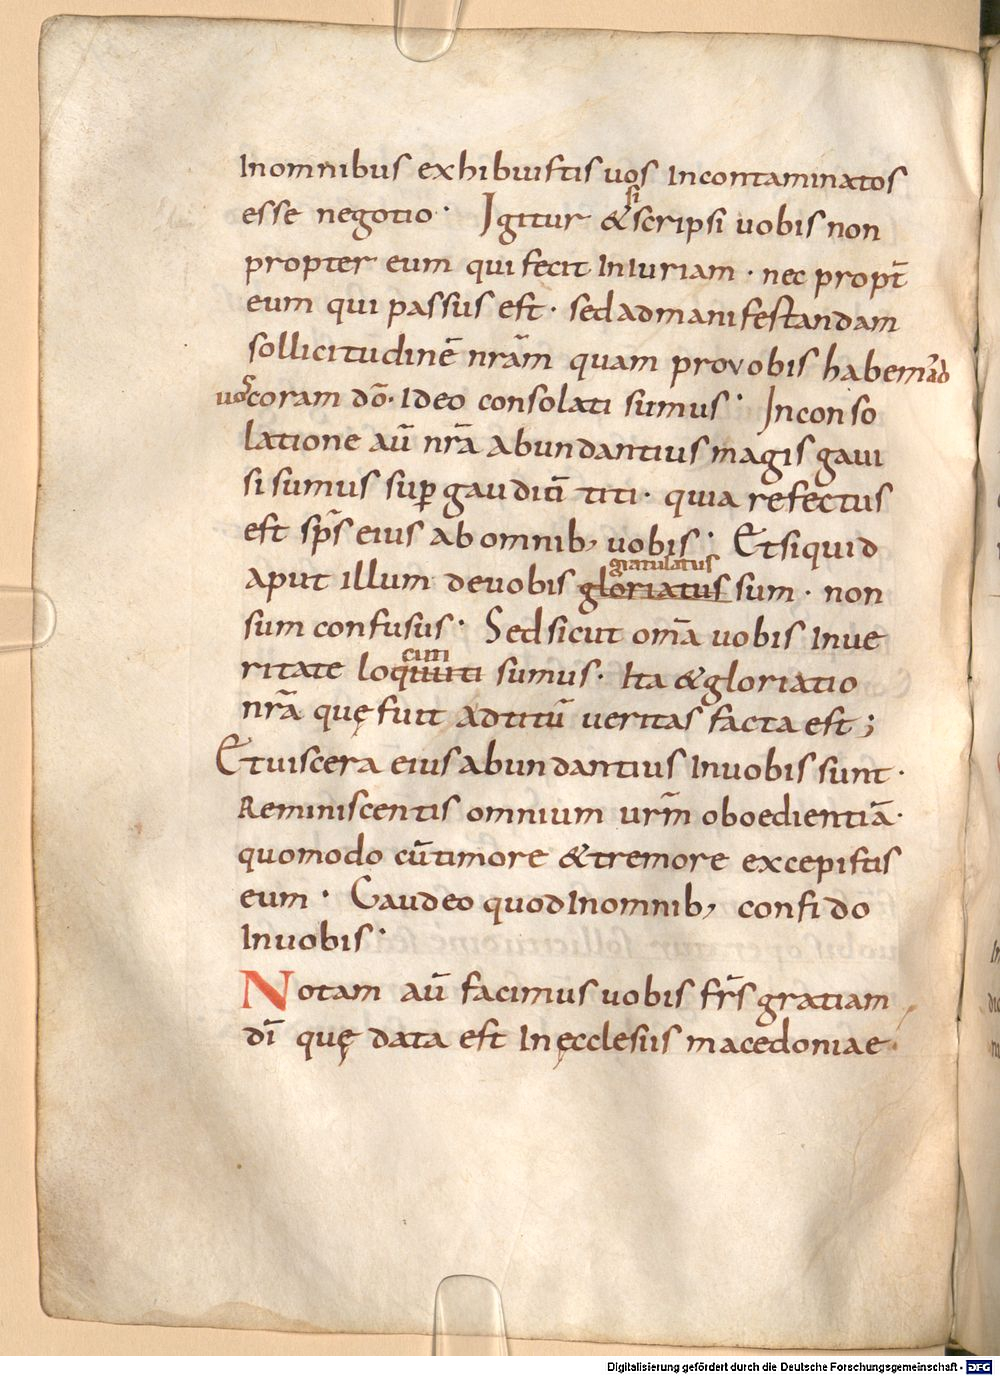 Inomnibus exhibuistis uos Incontaminatos
si
esse negotio· Igitur &scripsi uobis non
propter eum qui fecit InIuriam· nec propt̄
eum qui passus est· sed admanifestandam
sollicitudinē nr̄am quam provobis habem᾽ ad
uos coram dō· Ideo consolati sumus· Inconso
latione aū nr̄a abundantius magis gaui
si sumus suꝑ gaudiū titi· quia refectus
est sp̄s eius ab omnib, uobis· Etsiquid
gratulatus
aput illum deuobis gloriatus sum· non
sum confusus· Sed sicut om̄a uobis Inue
cuti
ritate loquuti sumus· Ita &gloriatio
nr̄a quę fuit adtitū ueritas facta est;
Etuiscera eius abundantius Inuobis sunt·
Reminiscentis omnium ur̄m oboedientiā·
quomodo cū timore &tremore excepistis
eum· Gaudeo quod Inomnib, confido
Inuobis·
Notam aū facimus uobis fr̄s gratiam
dī quę data est In ęcclesiis macedoniae·
Digitalisierung gefördert durch die Deutsche Forschungsgemeinschaft - DFG